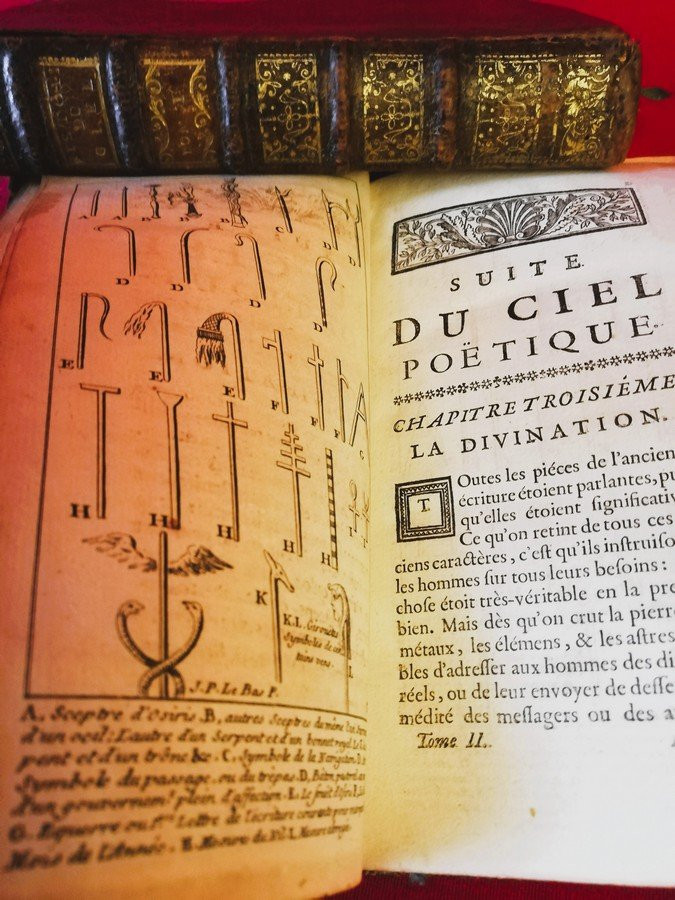 A A B B B C D D
D D D D
E E E F F F G
H H H H H I
K
K.L. Girouettes
Symboles de cer
tains vens.
L
J.P. Le Bas P.
A. Sceptre d'Osiris. B, autres Sceptres du même
d'un oeil: L'autre d'un Serpent et d'un bonnet royal.
pent et d'un trône &c. C. Symbole de la Navigation.
Symbole du passage, ou du trépas. D,
d'un gouvernemt. plein d'affection. E. Le
G. Equerre ou Lettre de l'ecriture courante pour
Mois de l'Année. H. Mesure du Nil. I.
SUITE
DU CIEL
POËTIQUE.
CHAPITRE TROISIÉME
LA DIVINATION.
TOutes les piéces de l'ancien
écriture étoient parlantes, pu
qu'elles étoient significativ
Ce qu'on retint de tous ces
ciens caractères, c'est qu'ils instruiso
les hommes sur tous leurs besoins :
chose étoit très-véritable en la pre
bien. Mais dès qu'on crut la pierr
métaux, les élémens, & les astres
bles d'adresser aux hommes des di
réels, ou de leur envoyer de desse
médité des messagers ou des a
Tome II.